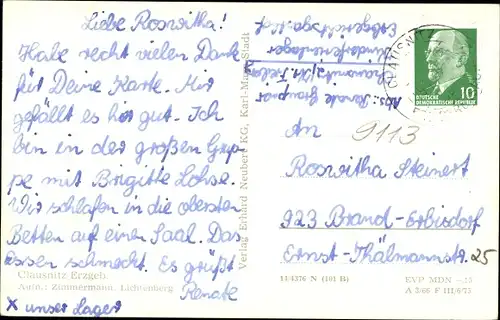 Liebe Roswitha!
Habe recht vielen Dank
für Deine Karte. Mir
gefällt es hier gut. Ich
bin in der großen Grup-
pe mit Brigitte Lohse.
Wir schlafen in die obersten
Betten auf einen Saal. Das
Essen schmeckt. Es grüßt
Renate
x unser Lager
Clausnitz Erzgeb.
Aufn.: Zimmermann, Lichtenberg
Verlag Erhard Neubert KG, Karl-Marx-Stadt
Abs: Renate
Kinderferienlager
CLAUSNITZ
10
DEUTSCHE
DEMOKRATISCHE REPUBLIK
An
9113
Roswitha Steinert
923 Brand-Erbisdorf
Ernst-Thälmannstr. 25
14/4376 N (101 B)
EVP MDN
A 2/66 F III/6/75